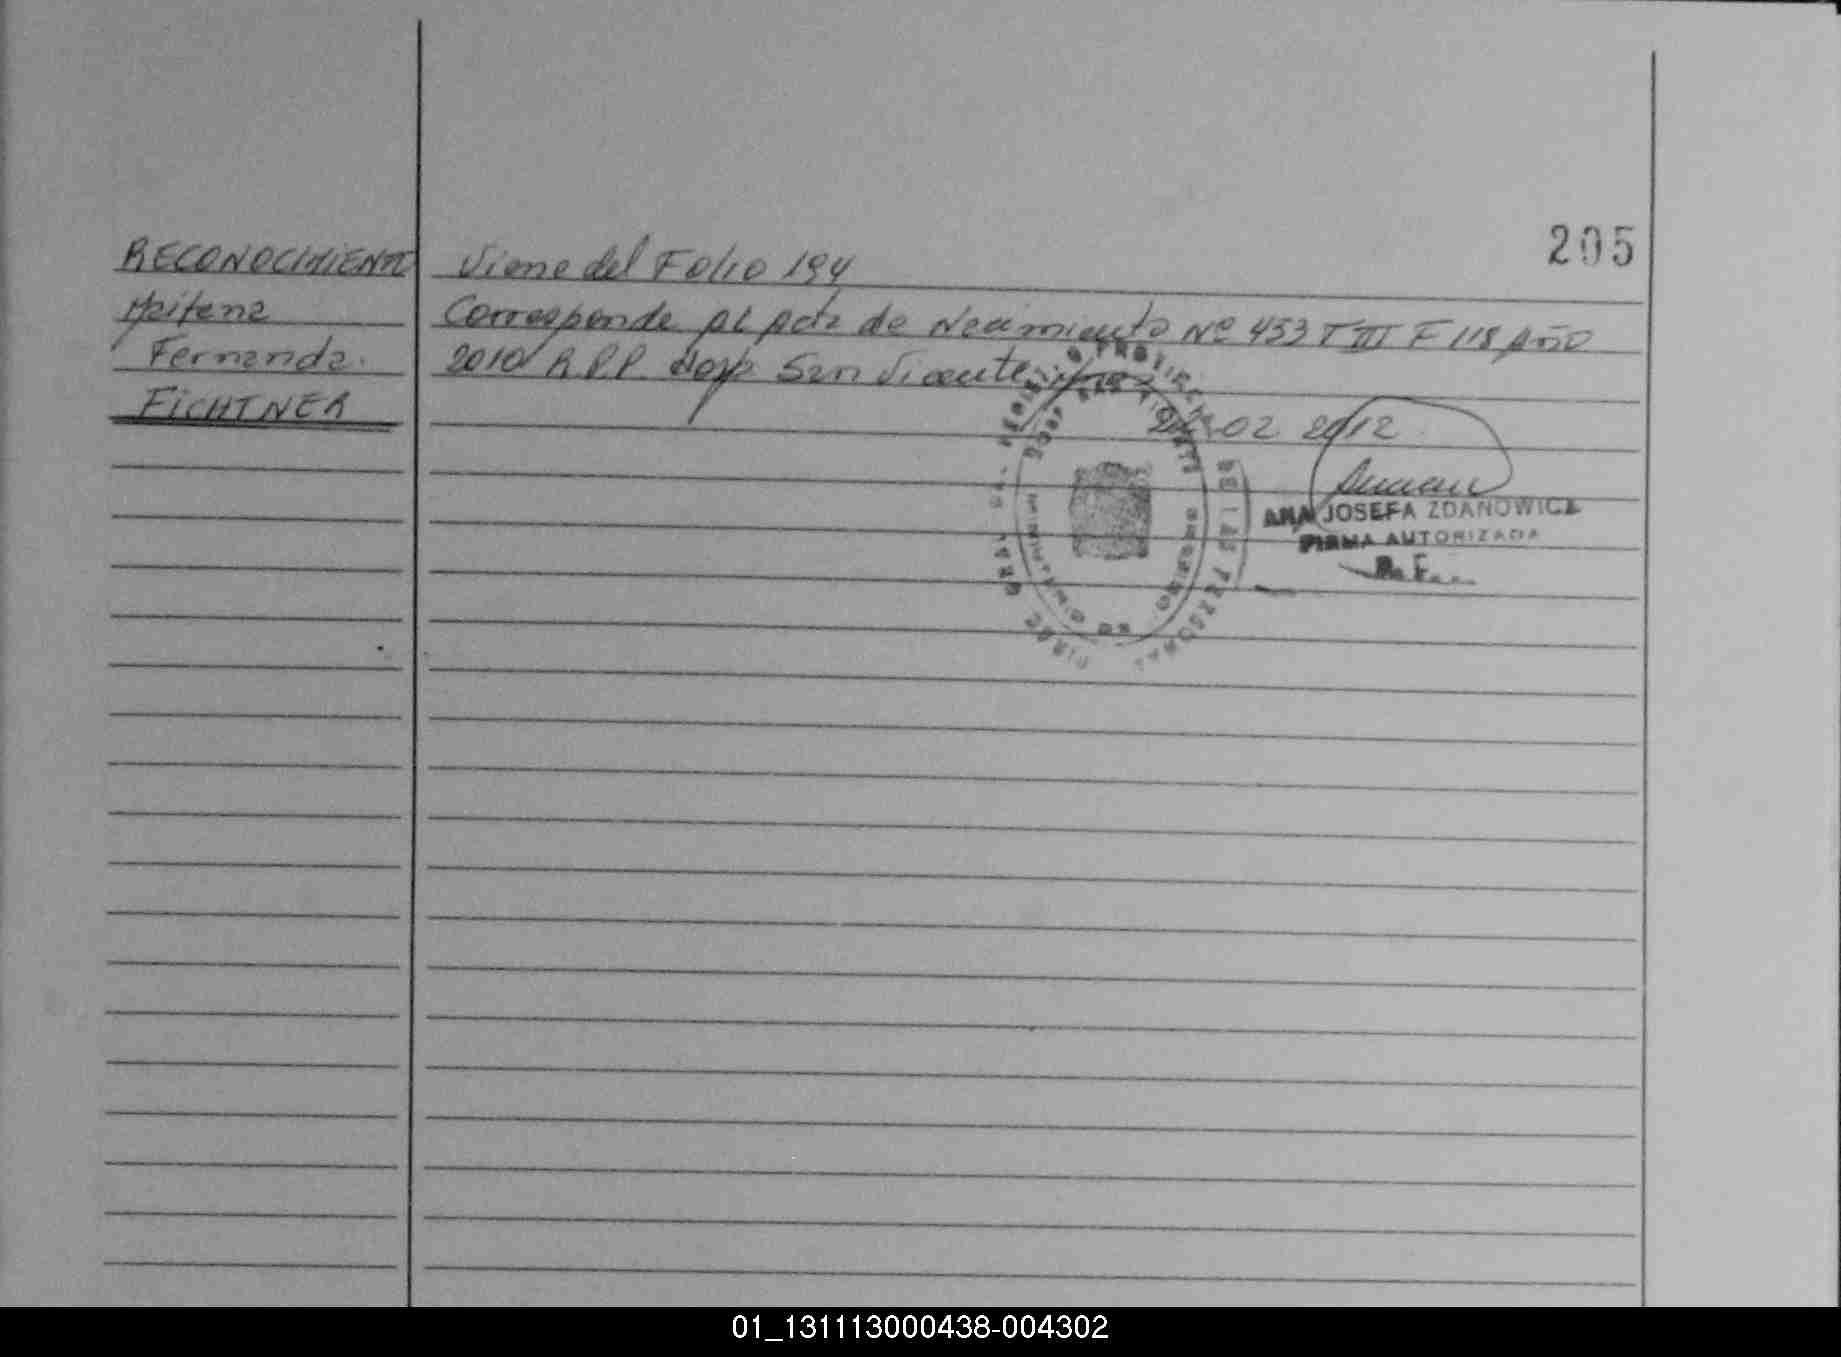 205
RECONOCIMIENTO Viene del Folio 194
Maitena Corresponde al Acta de Nacimiento Nº 453 T III F 118 Año
Fernanda. 2010 R.P.P. Hosp San Vicente
FICHTNER 02 2012
ANA JOSEFA ZDANOWICZ
FIRMA AUTORIZADA
DE LAS PERSONAS
01_131113000438-004302